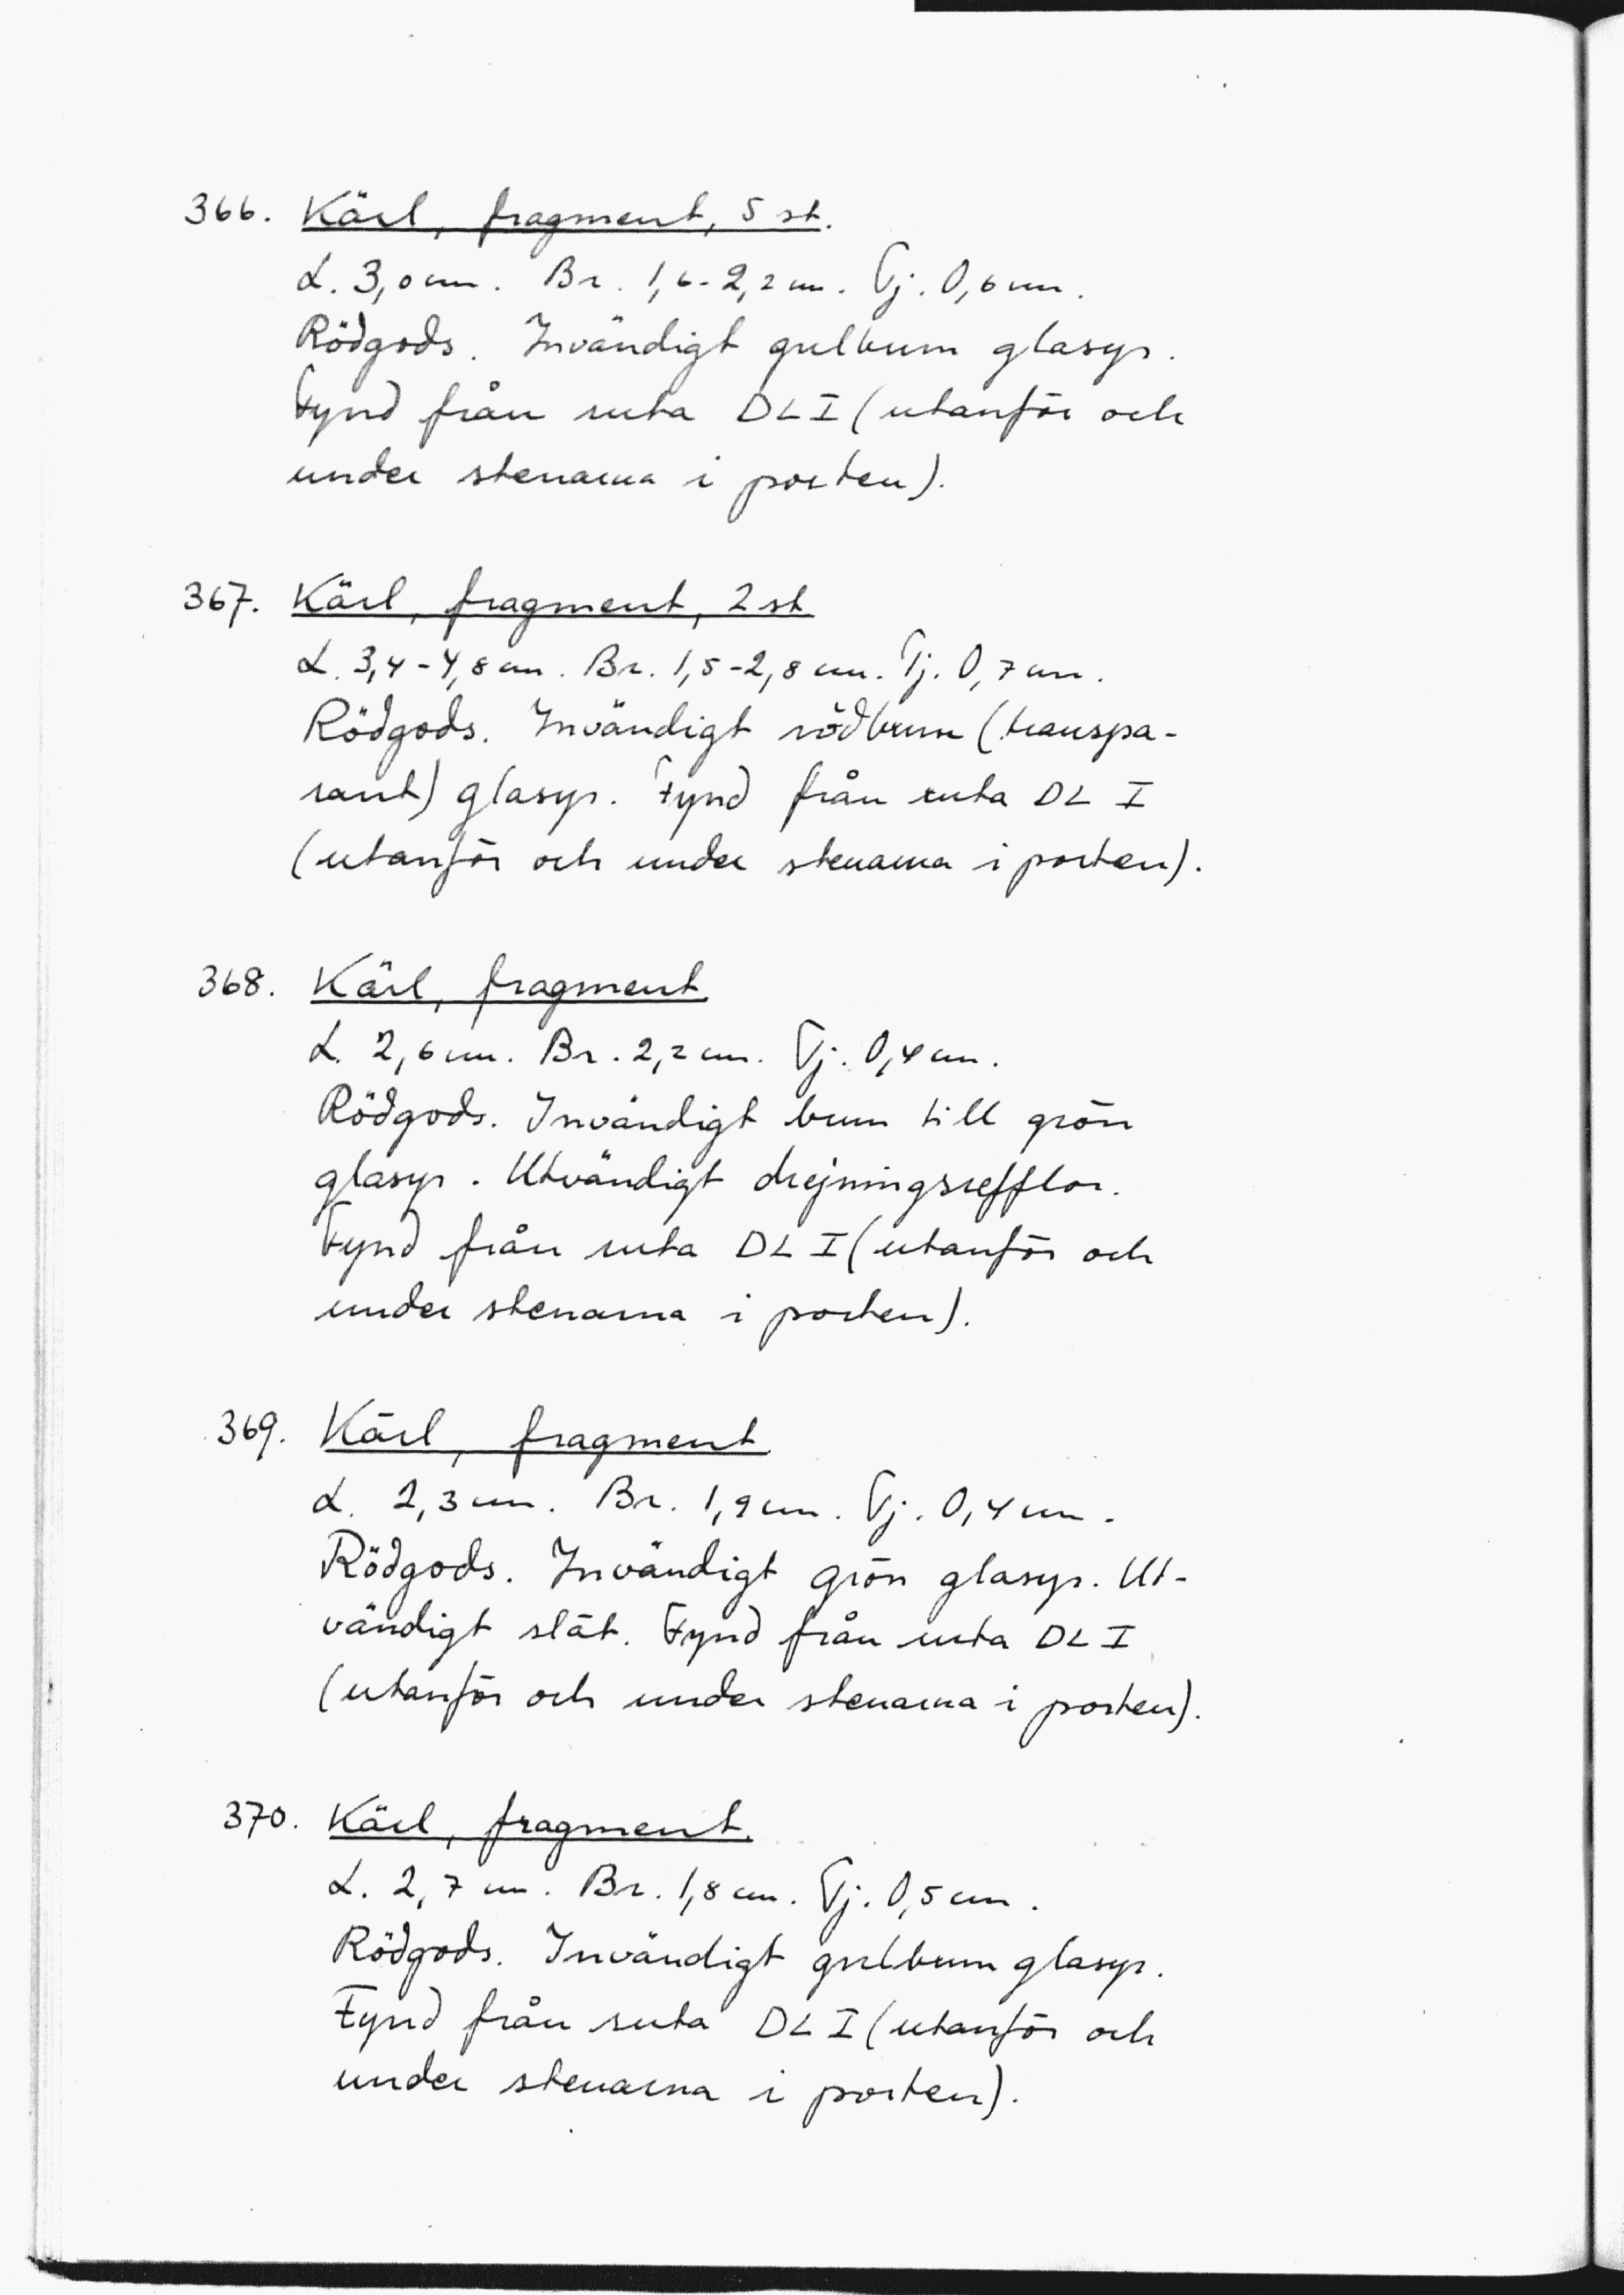 366. Kärl, fragment, 5 st.
L. 3,0 cm. Br. 1,6-2,2 cm. Tj. 0,6 cm.
Rödgods. Invändigt gulbrun glasyr.
Fynd från ruta DL I (utanför och
under stenarna i porten).
367. Kärl, fragment, 2 st
L. 3,4-4,8 cm. Br. 1,5-2,8 cm. Tj. 0,7 cm.
Rödgods. Invändigt rödbrun (transpa-
rant) glasyr. Fynd från ruta DL I
(utanför och under stenarna i porten).
368. Kärl, fragment
L. 2,6 cm. Br. 2,2 cm. Tj. 0,4 cm.
Rödgods. Invändigt brun till grön
glasyr. Utvändigt drejningsrefflor.
Fynd från ruta DL I (utanför och
under stenarna i porten).
369. Kärl, fragment
L. 2,3 cm. Br. 1,9 cm. Tj. 0,4 cm.
Rödgods. Invändigt grön glasyr. Ut-
vändigt slät. Fynd från ruta DL I
(utanför och under stenarna i porten).
370. Kärl, fragment.
L. 2,7 cm. Br. 1,8 cm. Tj. 0,5 cm.
Rödgods. Invändigt gulbrun glasyr.
Fynd från ruta DL I (utanför och
under stenarna i porten).